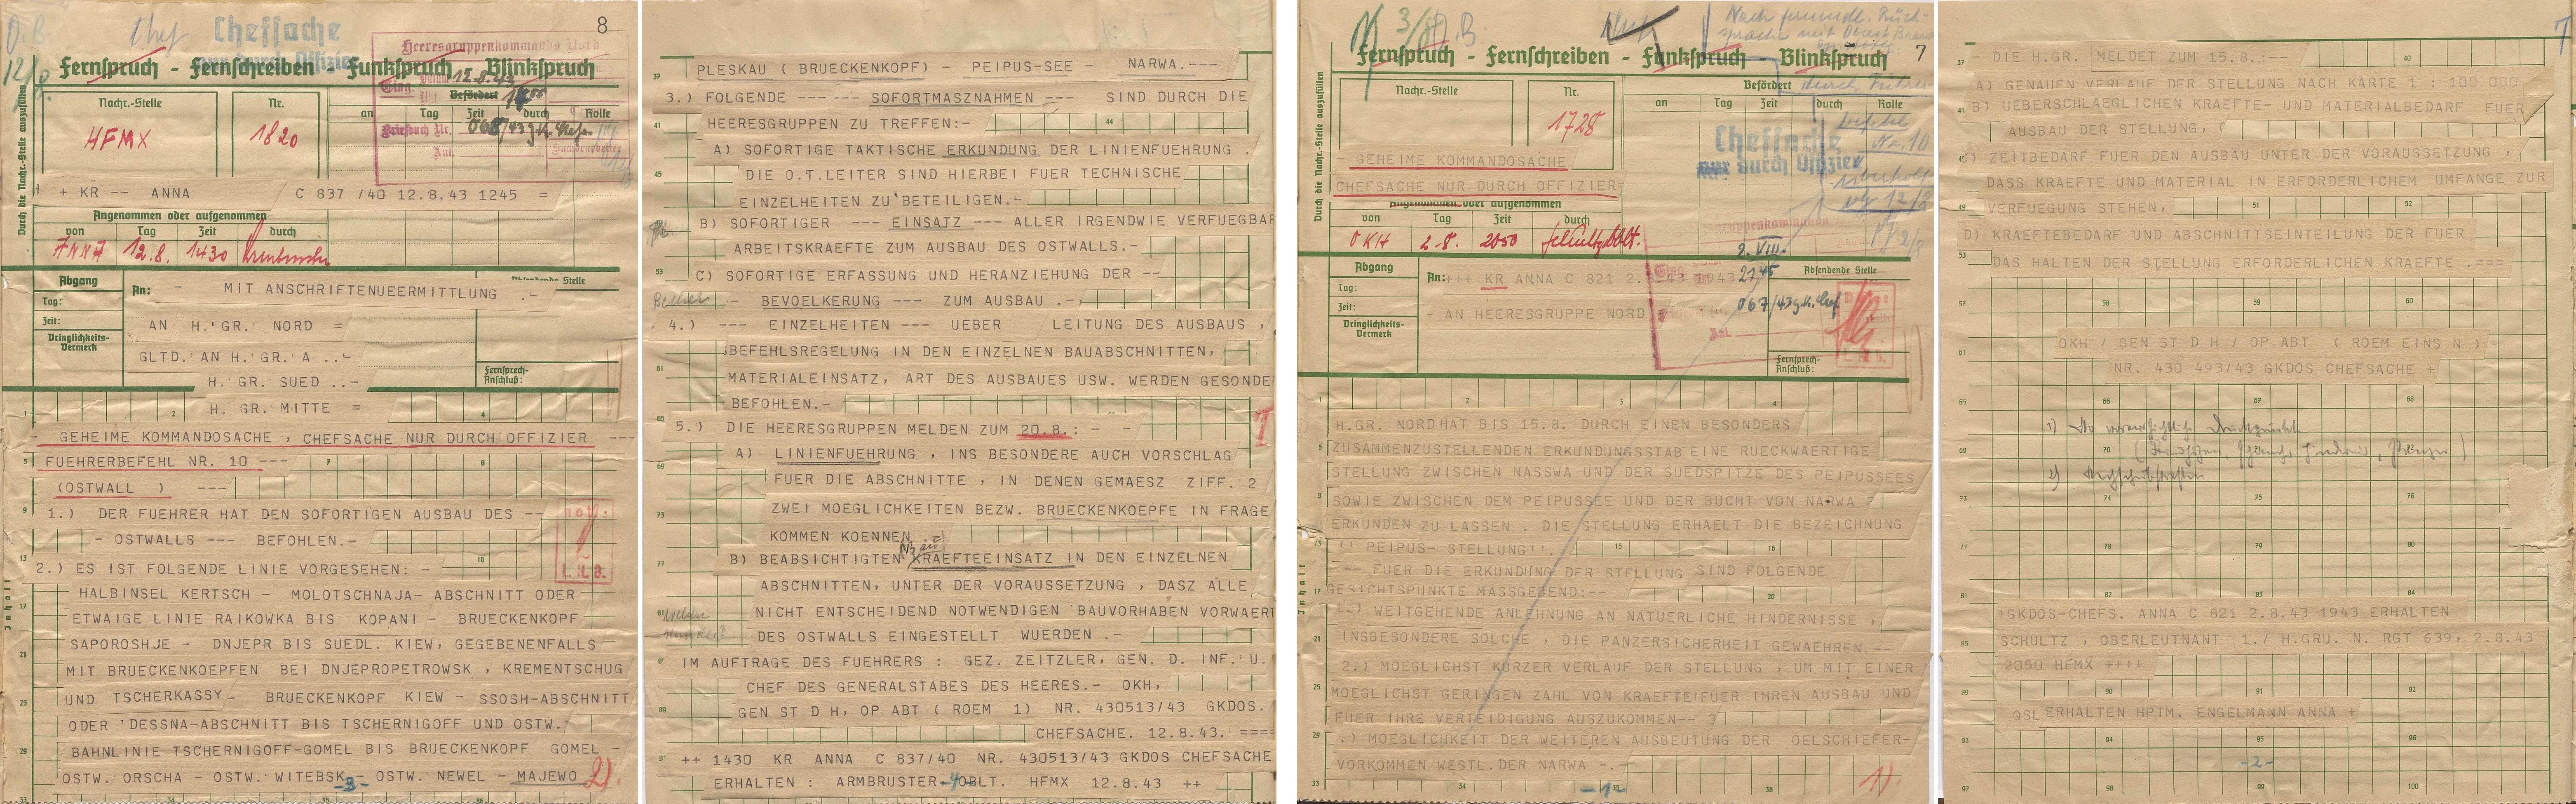 O.B.
Chef
Chefsache
nur durch Offizier
8
12/8.
Fernspruch - Fernschreiben - Funkspruch - Blinkspruch
Heeresgruppenkommando Nord
12.8.43
Nachr.-Stelle
Nr.
Befördert
an Tag Zeit durch Rolle
HFMX
1820
Briefbuch Nr. 068/43 g.K. Chefs.
Anl.
Durch die Nachr.-Stelle auszufüllen
+ KR -- ANNA C 837 /40 12.8.43 1245 =
Angenommen oder aufgenommen
von Tag Zeit durch
12.8. 1430
Abgang
Tag:
Zeit:
Dringlichkeits-
Vermerk
Absendende Stelle
An: - MIT ANSCHRIFTENUEERMITTLUNG .-
AN H.GR. NORD =
GLTD. AN H. GR. A ..-
H. GR. SUED ..-
H. GR. MITTE =
Fernsprech-
Anschluß:
- GEHEIME KOMMANDOSACHE , CHEFSACHE NUR DURCH OFFIZIER ---
FUEHRERBEFEHL NR. 10 ---
(OSTWALL ) ---
1.) DER FUEHRER HAT DEN SOFORTIGEN AUSBAU DES --
- OSTWALLS --- BEFOHLEN.-
2.) ES IST FOLGENDE LINIE VORGESEHEN: -
HALBINSEL KERTSCH - MOLOTSCHNAJA- ABSCHNITT ODER
ETWAIGE LINIE RAIKOWKA BIS KOPANI - BRUECKENKOPF
SAPOROSHJE - DNJEPR BIS SUEDL. KIEW, GEGEBENENFALLS
MIT BRUECKENKOEPFEN BEI DNJEPROPETROWSK , KREMENTSCHUG
UND TSCHERKASSY - BRUECKENKOPF KIEW - SSOSH-ABSCHNITT
ODER DESSNA-ABSCHNITT BIS TSCHERNIGOFF UND OSTW.
BAHNLINIE TSCHERNIGOFF-GOMEL BIS BRUECKENKOPF GOMEL -
OSTW. ORSCHA - OSTW. WITEBSK - OSTW. NEWEL - MAJEWO
2).
-3-
Inhalt
PLESKAU ( BRUECKENKOPF) - PEIPUS-SEE - NARWA.---
3.) FOLGENDE --- --- SOFORTMASZNAHMEN --- SIND DURCH DIE
HEERESGRUPPEN ZU TREFFEN:-
A) SOFORTIGE TAKTISCHE ERKUNDUNG DER LINIENFUEHRUNG .
DIE O.T.LEITER SIND HIERBEI FUER TECHNISCHE
EINZELHEITEN ZU BETEILIGEN.-
B) SOFORTIGER --- EINSATZ --- ALLER IRGENDWIE VERFUEGBAR
ARBEITSKRAEFTE ZUM AUSBAU DES OSTWALLS.-
C) SOFORTIGE ERFASSUNG UND HERANZIEHUNG DER --
- BEVOELKERUNG --- ZUM AUSBAU .-,
4.) --- EINZELHEITEN --- UEBER LEITUNG DES AUSBAUS ,
BEFEHLSREGELUNG IN DEN EINZELNEN BAUABSCHNITTEN,
MATERIALEINSATZ, ART DES AUSBAUES USW. WERDEN GESONDE
BEFOHLEN.-
5.) DIE HEERESGRUPPEN MELDEN ZUM 20.8.: - -
A) LINIENFUEHRUNG , INS BESONDERE AUCH VORSCHLAG
FUER DIE ABSCHNITTE , IN DENEN GEMAESZ ZIFF. 2
ZWEI MOEGLICHKEITEN BEZW. BRUECKENKOEPFE IN FRAGE
KOMMEN KOENNEN
B) BEABSICHTIGTEN KRAEFTEEINSATZ IN DEN EINZELNEN
ABSCHNITTEN, UNTER DER VORAUSSETZUNG , DASZ ALLE
NICHT ENTSCHEIDEND NOTWENDIGEN BAUVORHABEN VORWAERT
DES OSTWALLS EINGESTELLT WUERDEN .-
IM AUFTRAGE DES FUEHRERS : GEZ. ZEITZLER, GEN. D. INF. U.
CHEF DES GENERALSTABES DES HEERES.- OKH,
GEN ST D H, OP ABT ( ROEM 1) NR. 430513/43 GKDOS.
CHEFSACHE. 12.8.43. ====
++ 1430 KR ANNA C 837/40 NR. 430513/43 GKDOS CHEFSACHE
ERHALTEN : ARMBRUSTER-OBLT. HFMX 12.8.43 ++
-4-
7
Fernspruch - Fernschreiben - Funkspruch - Blinkspruch
Nachr.-Stelle
Nr.
Befördert
an Tag Zeit durch Rolle
1728
Chefsache
nur durch Offizier
- GEHEIME KOMMANDOSACHE
CHEFSACHE NUR DURCH OFFIZIER-
Durch die Nachr.-Stelle auszufüllen
Angenommen oder aufgenommen
von Tag Zeit durch
OKH 2.8. 2050 Schultz Oblt.
2. VIII.
2145
Abgang
Tag:
Zeit:
Dringlichkeits-
Vermerk
Absendende Stelle
An:+++ KR ANNA C 821 2.8.43 1943
067/43 g.K. Chef
- AN HEERESGRUPPE NORD
Fernsprech-
Anschluß:
H.GR. NORD HAT BIS 15.8. DURCH EINEN BESONDERS
ZUSAMMENZUSTELLENDEN ERKUNDUNGSSTAB EINE RUECKWAERTIGE
STELLUNG ZWISCHEN NASSWA UND DER SUEDSPITZE DES PEIPUSSEES
SOWIE ZWISCHEN DEM PEIPUSSEE UND DER BUCHT VON NARWA
ERKUNDEN ZU LASSEN . DIE STELLUNG ERHAELT DIE BEZEICHNUNG
'' PEIPUS- STELLUNG''.
--- FUER DIE ERKUNDUNG DER STELLUNG SIND FOLGENDE
GESICHTSPUNKTE MASSGEBEND:--
1.) WEITGEHENDE ANLEHNUNG AN NATUERLICHE HINDERNISSE ,
INSBESONDERE SOLCHE , DIE PANZERSICHERHEIT GEWAEHREN.--
2.) MOEGLICHST KURZER VERLAUF DER STELLUNG , UM MIT EINER
MOEGLICHST GERINGEN ZAHL VON KRAEFTE FUER IHREN AUSBAU UND
FUER IHRE VERTEIDIGUNG AUSZUKOMMEN-- 3
.) MOEGLICHKEIT DER WEITEREN AUSBEUTUNG DER OELSCHIEFER-
VORKOMMEN WESTL. DER NARWA -.-
-1-
1)
Inhalt
7
- DIE H.GR. MELDET ZUM 15.8.:-
A) GENAUEN VERLAUF DER STELLUNG NACH KARTE 1 : 100 000.
B) UEBERSCHLAEGLICHEN KRAEFTE- UND MATERIALBEDARF FUER
AUSBAU DER STELLUNG,
) ZEITBEDARF FUER DEN AUSBAU UNTER DER VORAUSSETZUNG ,
DASS KRAEFTE UND MATERIAL IN ERFORDERLICHEM UMFANGE ZUR
VERFUEGUNG STEHEN,
D) KRAEFTEBEDARF UND ABSCHNITTSEINTEILUNG DER FUER
DAS HALTEN DER STELLUNG ERFORDERLICHEN KRAEFTE ===
OKH / GEN ST D H / OP ABT ( ROEM EINS N )
NR. 430 493/43 GKDOS CHEFSACHE +
+GKDOS-CHEFS. ANNA C 821 2.8.43 1943 ERHALTEN
SCHULTZ , OBERLEUTNANT 1./ H.GRU. N. RGT 639, 2.8.43
2050 HFMX ++++
QSL ERHALTEN HPTM. ENGELMANN ANNA +
-2-